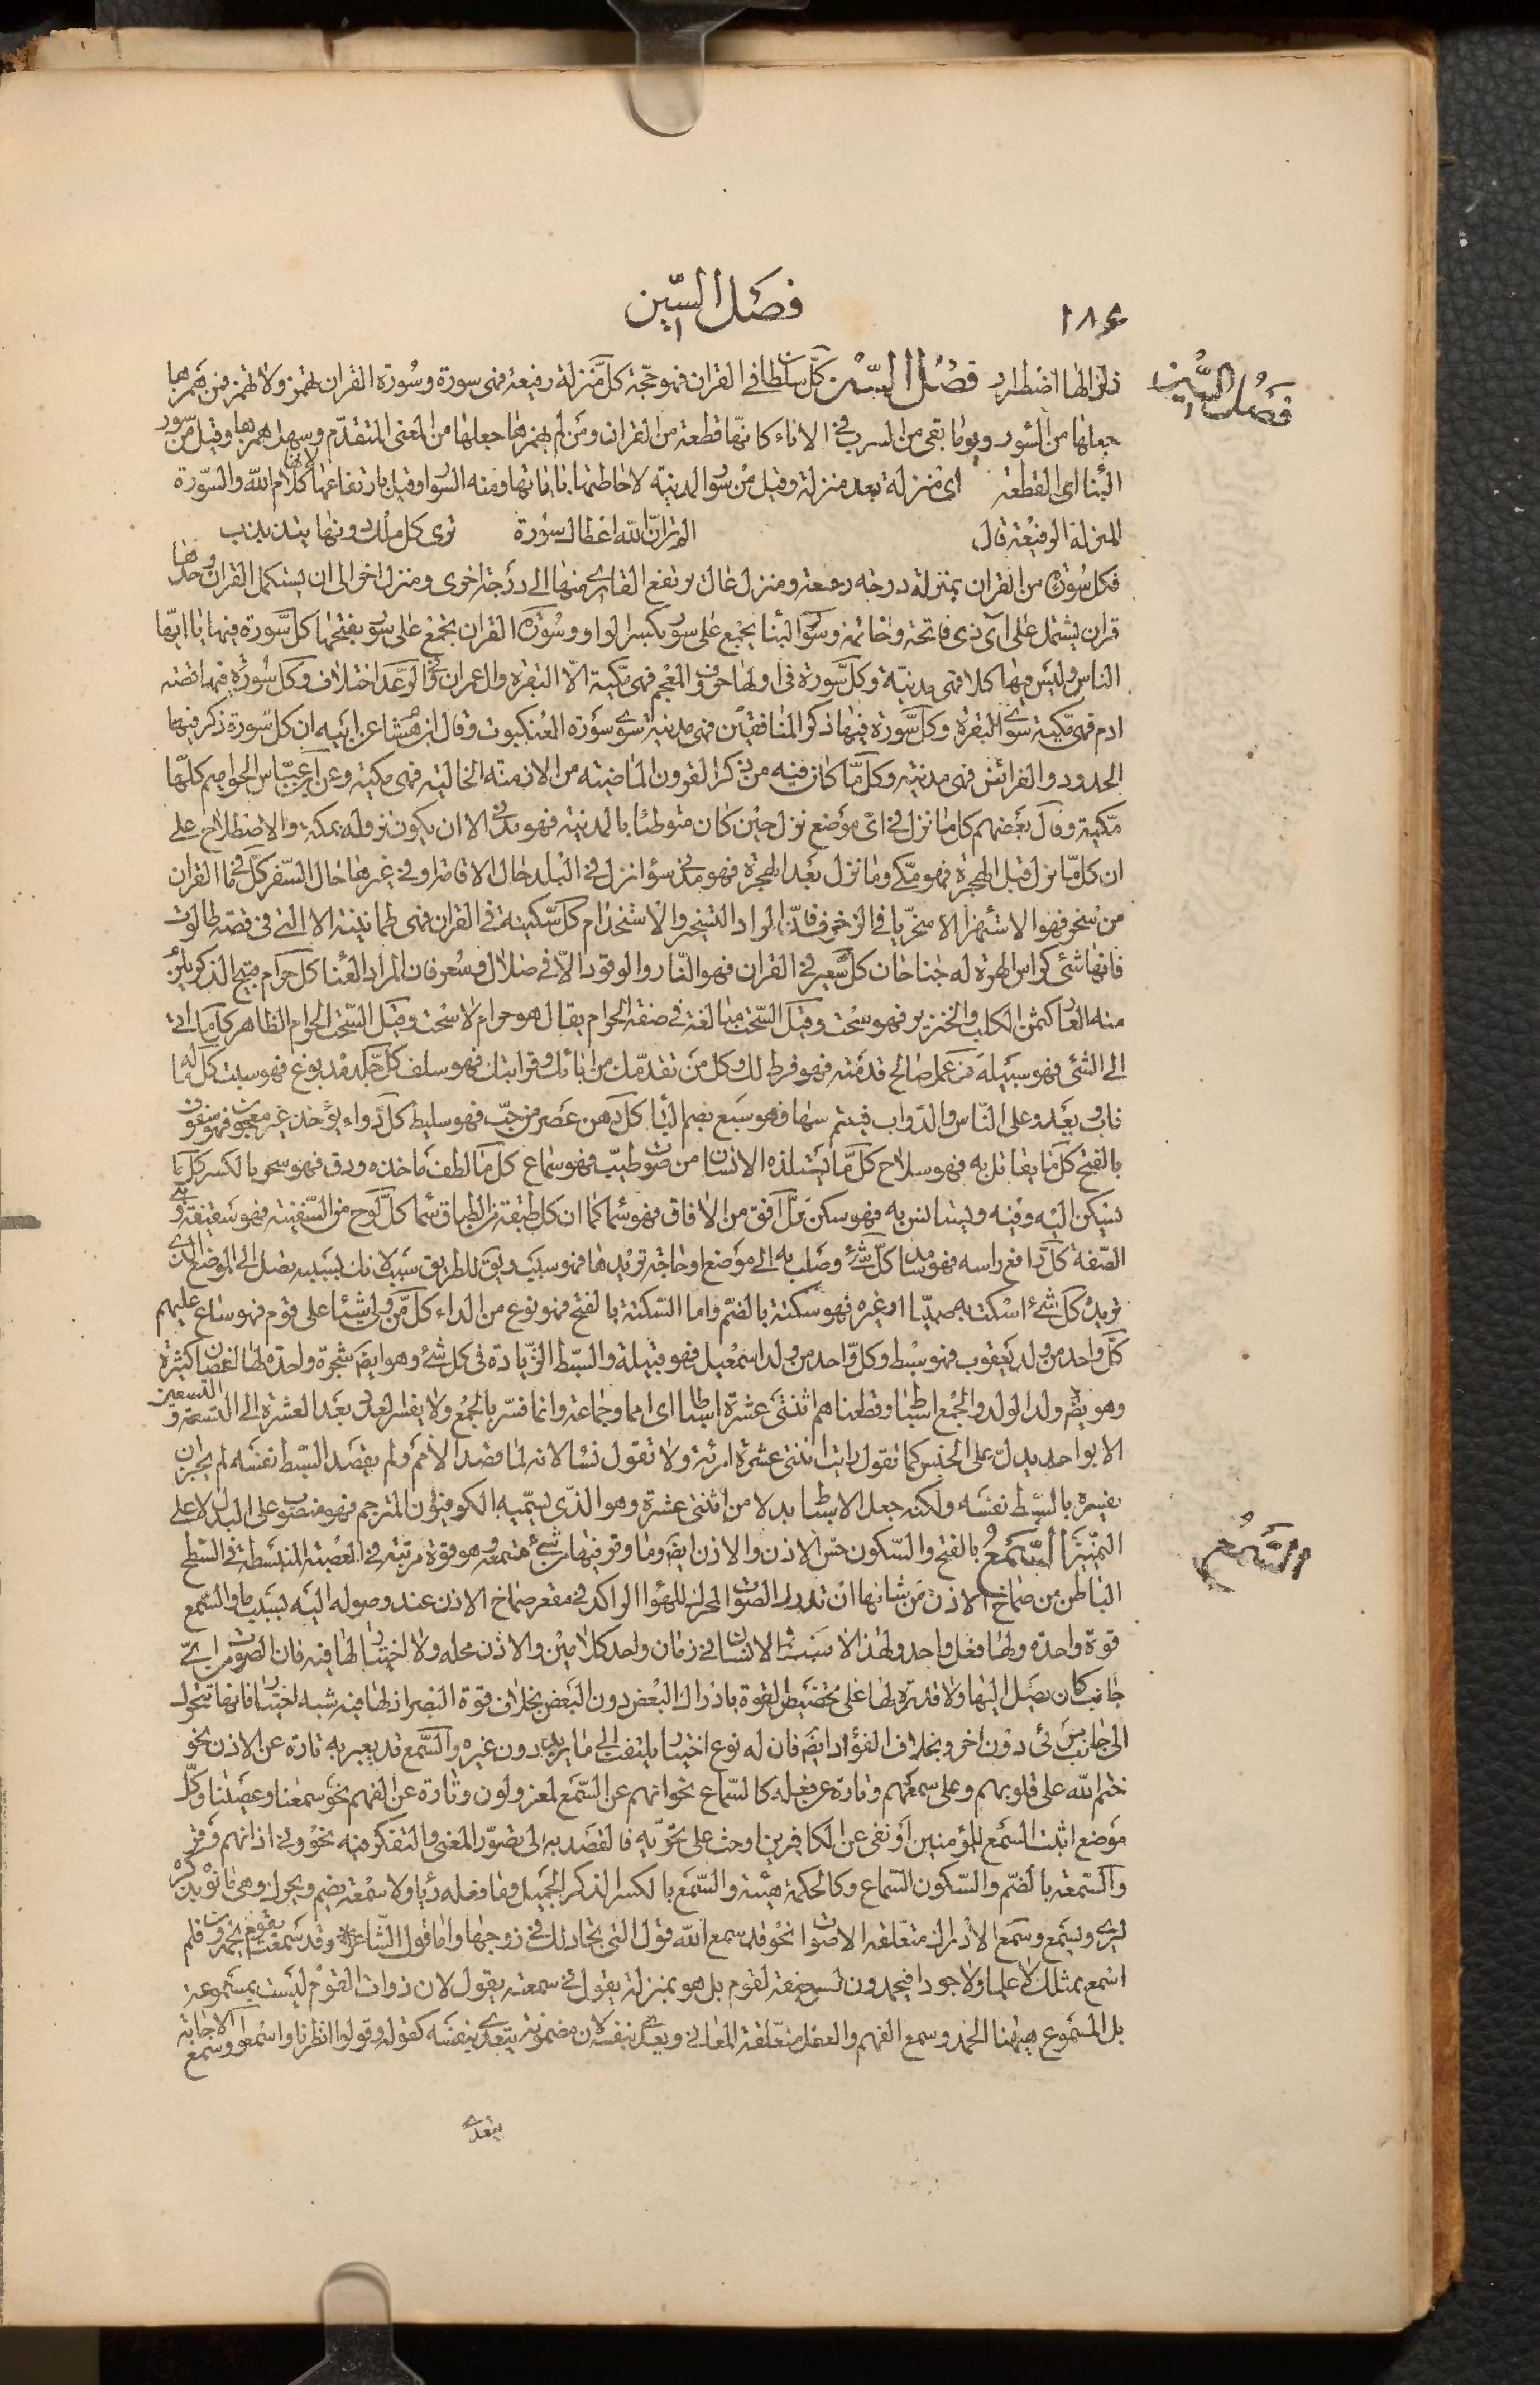 ١٨٤
فصل السّين
فصل السّين
زلزالها اضطراب فصل السّين كلّ سلطان في القران فهو حجّة كلّ منزلة رفيعة فهى سورة وسورة القران تهمز ولا تهمز فمن همزها
جعلها من السور وهو ما بقى من السرب في الاناء كانّها قطعة من القران ومن لم يهمزها جعلها من المعنى المتقدّم وسهل همزها وقيل من سور
البناء اى القطعة اى منزلة بعد منزلة وقيل من سور المدينة لاحاطتها باياتها ومنه السوار وقيل لارتفاعها لانّها كلام الله والسّورة
المنزلة الرفيعة قال الم تر انّ الله اعطاك سورة ترى كل ملك دونها يتذبذب
فكل سورة من القران بمنزلة درجة رفيعة ومنزل عال يرتفع القارى منها الى درجة اخرى ومنزل اخر الى ان يستكمل القران وحدها
قران يشتمل على آى ذى فاتحة وخاتمة وسور البناء يجمع على سور بكسر الواو وسورة القران يجمع على سور بفتحها كل سّورة فيها يا ايّها
الناس وليس فيها كلا فهى مدنيّة وكل سّورة في اولها حروف المعجم فهى مكّية الّا البقرة وال عمران وفي الرعد اختلاف وكل سورة فيها قصة
ادم فهى مكّية سوى البقرة وكل سّورة فيها ذكر المنافقين فهى مدنية سوى سورة العنكبوت وقال ابن هشام عن ابيه ان كل سّورة ذكر فيها
الحدود والفرائض فهى مدنية وكل ما كان فيه من ذكر القرون الماضية من الازمنة الخالية فهى مكية وعن ابن عبّاس الحواميم كلّها
مكّية وقال بعضهم كل ما نزل في اىّ موضع نزل حين كان متوطنا بالمدينة فهو مدنى الا ان يكون نزوله بمكة والاصطلاح على
ان كل ما نزل قبل الهجرة فهو مكّى وما نزل بعد الهجرة فهو مدنى سواء نزل في البلد حال الاقامة او في غيرها حال السّفر كل ما في القران
من سخر فهو الاستهزاء الا سخريّا في الزخرف فانّ المراد التسخير والاستخدام كل سّكينة في القران فهى طمانينة الا التى في قصة طالوت
فانها شئ كراس الهرة له جناحان كل سعير في القران فهو النّار والوقود الّا في ضلال وسعر فان المراد العناء كل حرام قبيح الذكر يلزم
منه العار كثمن الكلب والخنزير فهو سحت وقيل السّحت مبالغة في صفة الحرام يقال هو حرام لا سحت وقيل السّحت الحرام الظاهر كل ما يأتى
الى الشئ فهو سبيله من عمل صالح قدمته فهو فرط لك وكل من تقدّمك من ابائك وقرابتك فهو سلف كل جلد مدبوغ فهو سبت كل ما له
ناب ويعدو على النّاس والدّواب فيفترسها فهو سبع بضم الباء كل دهن عصر من حبّ فهو سليط كل دواء يؤخذ غير معجون فهو سفوف
بالفتح كل ما يقاتل به فهو سلاح كل ما يستلذه الانسان من صوت طيّب فهو سماع كل ما لطف ماخذه ودق فهو سحر بالكسر كل ما
يسكن اليه وفيه ويستانس به فهو سكن كلّ افق من الافاق فهو سماء كما ان كل طبقة من الطباق سماء كلّ لوح من السّفينة فهو سقيفة
الصّفة كلّ رافع راسه فهو سامد كلّ شئ وصلت به الى موضع او حاجة تريدها فهو سبب ويق للطريق سبب لانك بسببه تصل الى الموضع الذى
تريد كل شئ اسكت به صبيّا او غيره فهو سكتة بالضمّ واما السّكتة بالفتح فهو نوع من الداء كل من ولى شيئا على قوم فهو ساع عليهم
كلّ واحد من ولد يعقوب فهو سبط وكل واحد من ولد اسمعيل فهو قبيلة والسبّط الزّيادة فى كل شئ وهو ايضا شجرة واحدة لها اغصان كثيرة
وهو يضا ولد الولد والجمع اسباط وقطعناهم اثنتى عشرة اسباطا اى امما وجماعة وانما فسّر بالجمع ولا يفسر العدد بعد العشرة الى التسعة والتسعين
الا بواحد يدل على الجنس كما تقول رايت اثنتى عشرة امرئة ولا تقول نساء لانه لما قصد الامم ولم يقصد السّبط نفسه لم يجز ان
يفسره بالسّبط نفسه ولكنه جعل الاسباط بدلا من اثنتى عشرة وهو الذّى يسمّيه الكوفيون المترجم فهو منصوب على البدل لا على
التميّز السَّمعُ بالفتح والسّكون حس الاذن والاذن ايضا وما وقر فيها من شئ تسمعه وهو قوة مرتبة في العصبة المنبسطة في السطح
السَّمعُ
الباطن من صماخ الاذن من شانها ان تدرك الصوت المحرك للهواء الراكد في مقعر صماخ الاذن عند وصوله اليه بسبب ما والسّمع
قوة واحدة ولها فعل واحد ولهذا لا يضبط الانسان في زمان واحد كلامين والاذن محله ولا اختيار لها فيه فان الصوت من اىّ
جانب كان يصل اليها ولا قدرة لها على تخصيص القوة بادراك البعض دون البعض بخلاف قوة البصر اذ لها فيه شبه اختيار فانها تتحرك
الى جانب مرئى دون اخر وبخلاف الفؤاد ايضا فان له نوع اختيار يلتفت الى ما يريد دون غيره والسّمع قد يعبر به تارة عن الاذن نحو
ختم الله على قلوبهم وعلى سمعهم وتارة عن فعله كالسّماع نحو انهم عن السّمع لمعزولون وتارة عن الفهم نحو سمعنا وعصينا وكلّ
موضع اثبت السّمع للمؤمنين او نفى عن الكافرين او حث على تحرّيه فالقصد به الى تصوّر المعنى والتفكر فيه نحو وفى اذانهم وقر
والسّمعة بالضمّ والسّكون السّماع وكالحكمة هيئة والسّمع بالكسر الذكر الجميل وما فعله رياء ولا سمعة يضم ويحرك وهى ما نوّه بذكره
ليرى ويسمع وسمع الادراك متعلقه الاصوات نحو قد سمع الله قول التى تجادلك في زوجها واما قول الشّاعر وقد سمعت بقوم يحمدون فلم
اسمع بمثلك لا علما ولا جودا فيحمدون ليس صفة لقوم بل هو بمنزلة يقول في سمعته يقول لان ذوات القوم ليست بمسموعة
بل المسموع هيهنا الحمد وسمع الفهم والعقل متعلقه المعانى ويعدى بنفسه لان مضمونه يتعدى بنفسه كقوله وقولوا انظرنا واسمعوا وسمع الاجابة
يتعدى